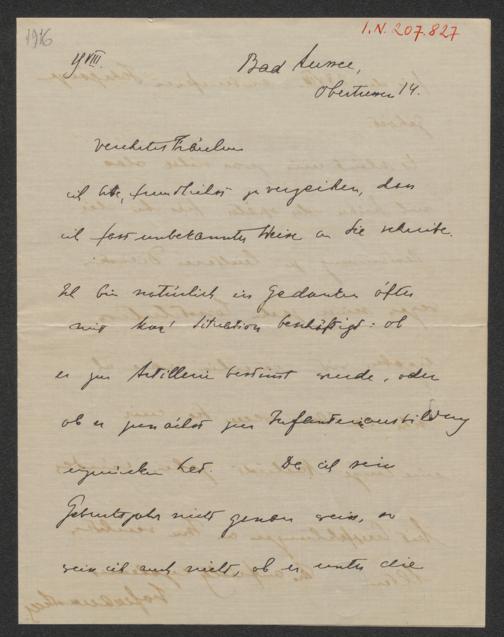 1916
I.N. 207.827
9/VIII.
Bad Aussee,
Obertressen 14.
verehrtes Fräulein
ich bitte, freundlichst zu verzeihen, dass
ich fast unbekannter Weise an Sie schreibe.
Ich bin natürlich in Gedanken öfter
mit Situation beschäftigt: ob
er zur Artillerie bestimmt wurde, oder
ob er zunächst zur Infanterieausbildung
einrücken hat. Da ich sein
Geburtsjahr nicht genau weiss, so
weiss ich auch nicht, ob er unter die